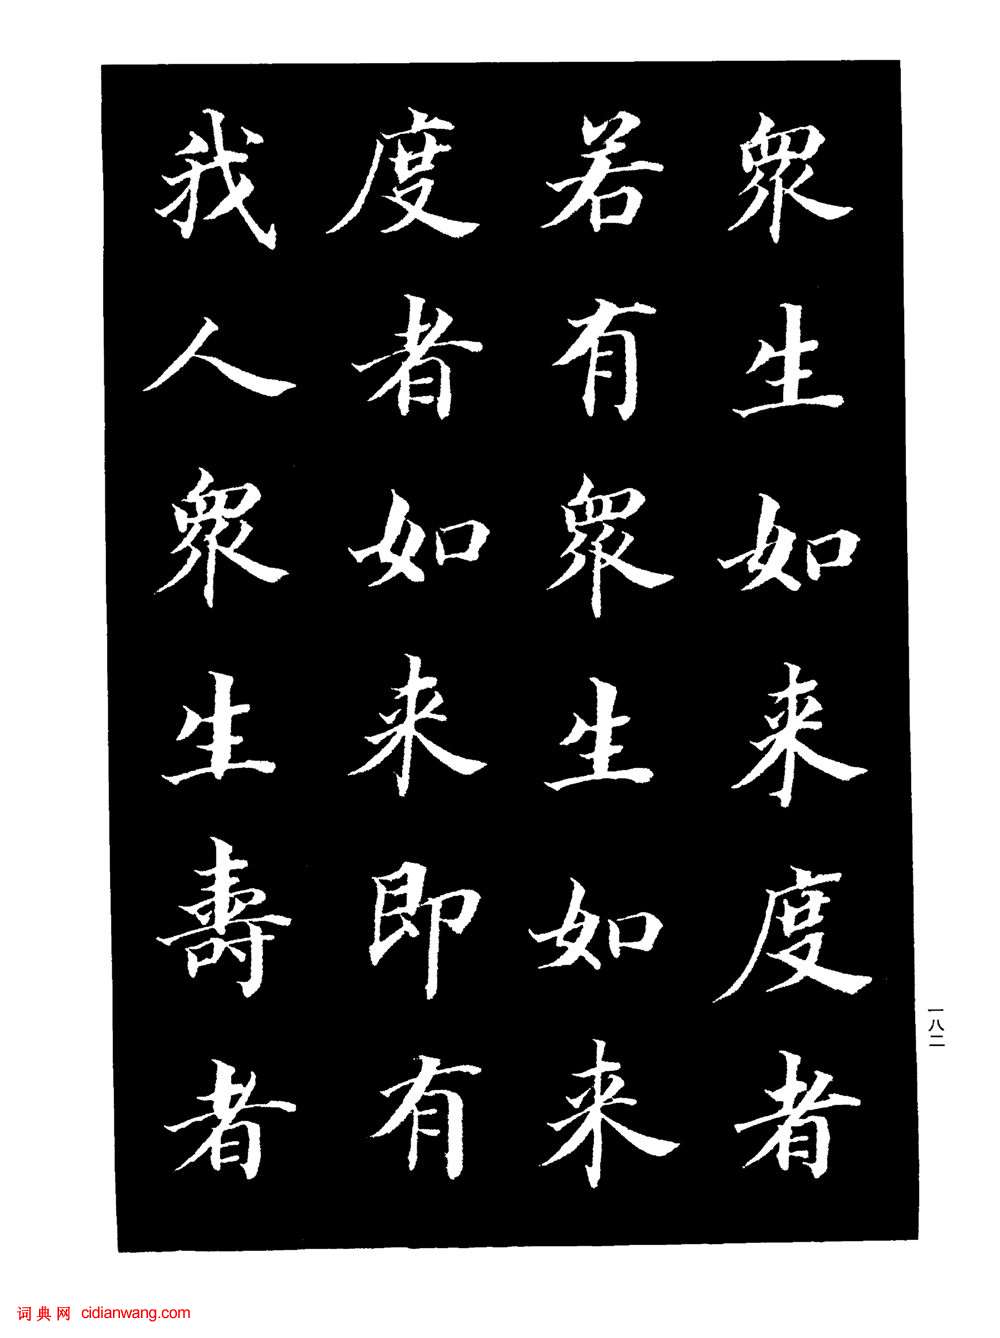 眾生如来度者
若有眾生如来
度者如来即有
我人眾生壽者
一八二
词典网 cidianwang.com